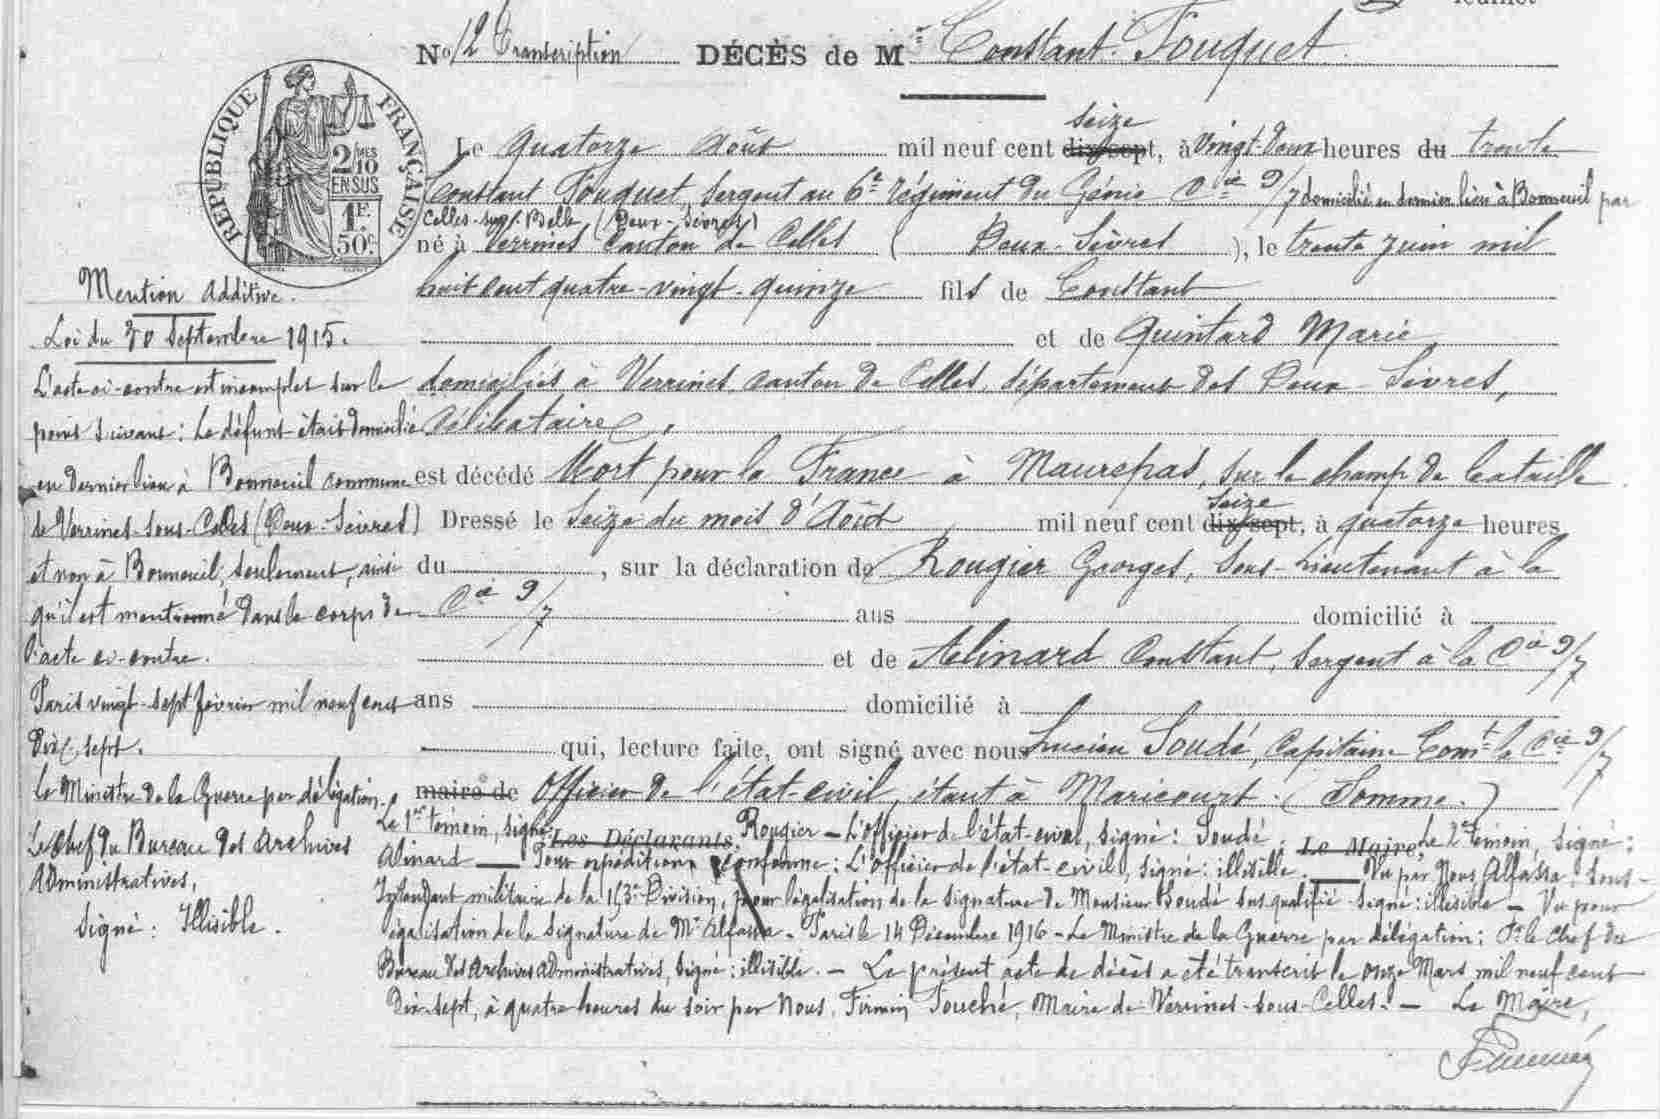 feuillet
N° 12 Transcription DÉCÈS de Mr Constant Fouquet
RÉPUBLIQUE FRANÇAISE
2 MES
10
EN SUS
1F.
50c.
seize
Le quatorze Août mil neuf cent dix-sept, à vingt-deux heures du trente
Constant Fouquet, Sergent au 6e régiment du Génie Cie 9/7 domicilié en dernier lieu à Bonneuil par
Celles-sur-Belle (Deux-Sèvres)
né à Verrines canton de Celles (Deux-Sèvres), le trente juin mil
huit cent quatre-vingt-quinze fils de Constant
et de Quintard Marie
domiciliés à Verrines, canton de Celles, département des Deux-Sèvres,
célibataire
est décédé Mort pour la France à Maurepas, sur le champ de bataille
seize
Dressé le seize du mois d'Août mil neuf cent dix-sept, à quatorze heures
du , sur la déclaration de Rougier Georges, Sous-Lieutenant à la
Cie 9/7 ans domicilié à
et de Alinard Constant, Sergent à la Cie 9/7
ans domicilié à
qui, lecture faite, ont signé avec nous Lucien Soudé, Capitaine Comt la Cie 9/7
maire de Officier de l'état-civil, étant à Maricourt (Somme.)
Le 1er témoin, signé: Les Déclarants, Rougier — L'officier de l'état-civil, signé: Soudé. Le Maire, Le 2e témoin, signé:
Alinard — Pour expédition conforme: L'officier de l'état-civil, signé: illisible. — Vu par Nous Alfassa, Sous-
Intendant militaire de la 153e Division, pour légalisation de la signature de Monsieur Soudé sus qualifié signé: illisible — Vu pour
légalisation de la signature de Mr Alfassa — Paris le 14 Décembre 1916 — Le Ministre de la Guerre par délégation: Pr le Chef du
Bureau des Archives Administratives, signé: illisible. — Le présent acte de décès a été transcrit le onze Mars mil neuf cent
Dix-sept, à quatre heures du soir par Nous, Firmin Souché, Maire de Verrines-sous-Celles. — Le Maire,
Mention additive.
Loi du 30 Septembre 1915.
L'acte ci-contre est incomplet sur le
point suivant: Le défunt était domicilié
en dernier lieu à Bonneuil commune
de Verrines-sous-Celles (Deux-Sèvres)
et non à Bonneuil, seulement, ainsi
qu'il est mentionné dans le corps de
l'acte ci-contre.
Paris vingt-sept février mil neuf cent
dix-sept.
Le Ministre de la Guerre par délégation.
Le Chef du Bureau des Archives
Administratives,
Signé: Illisible.